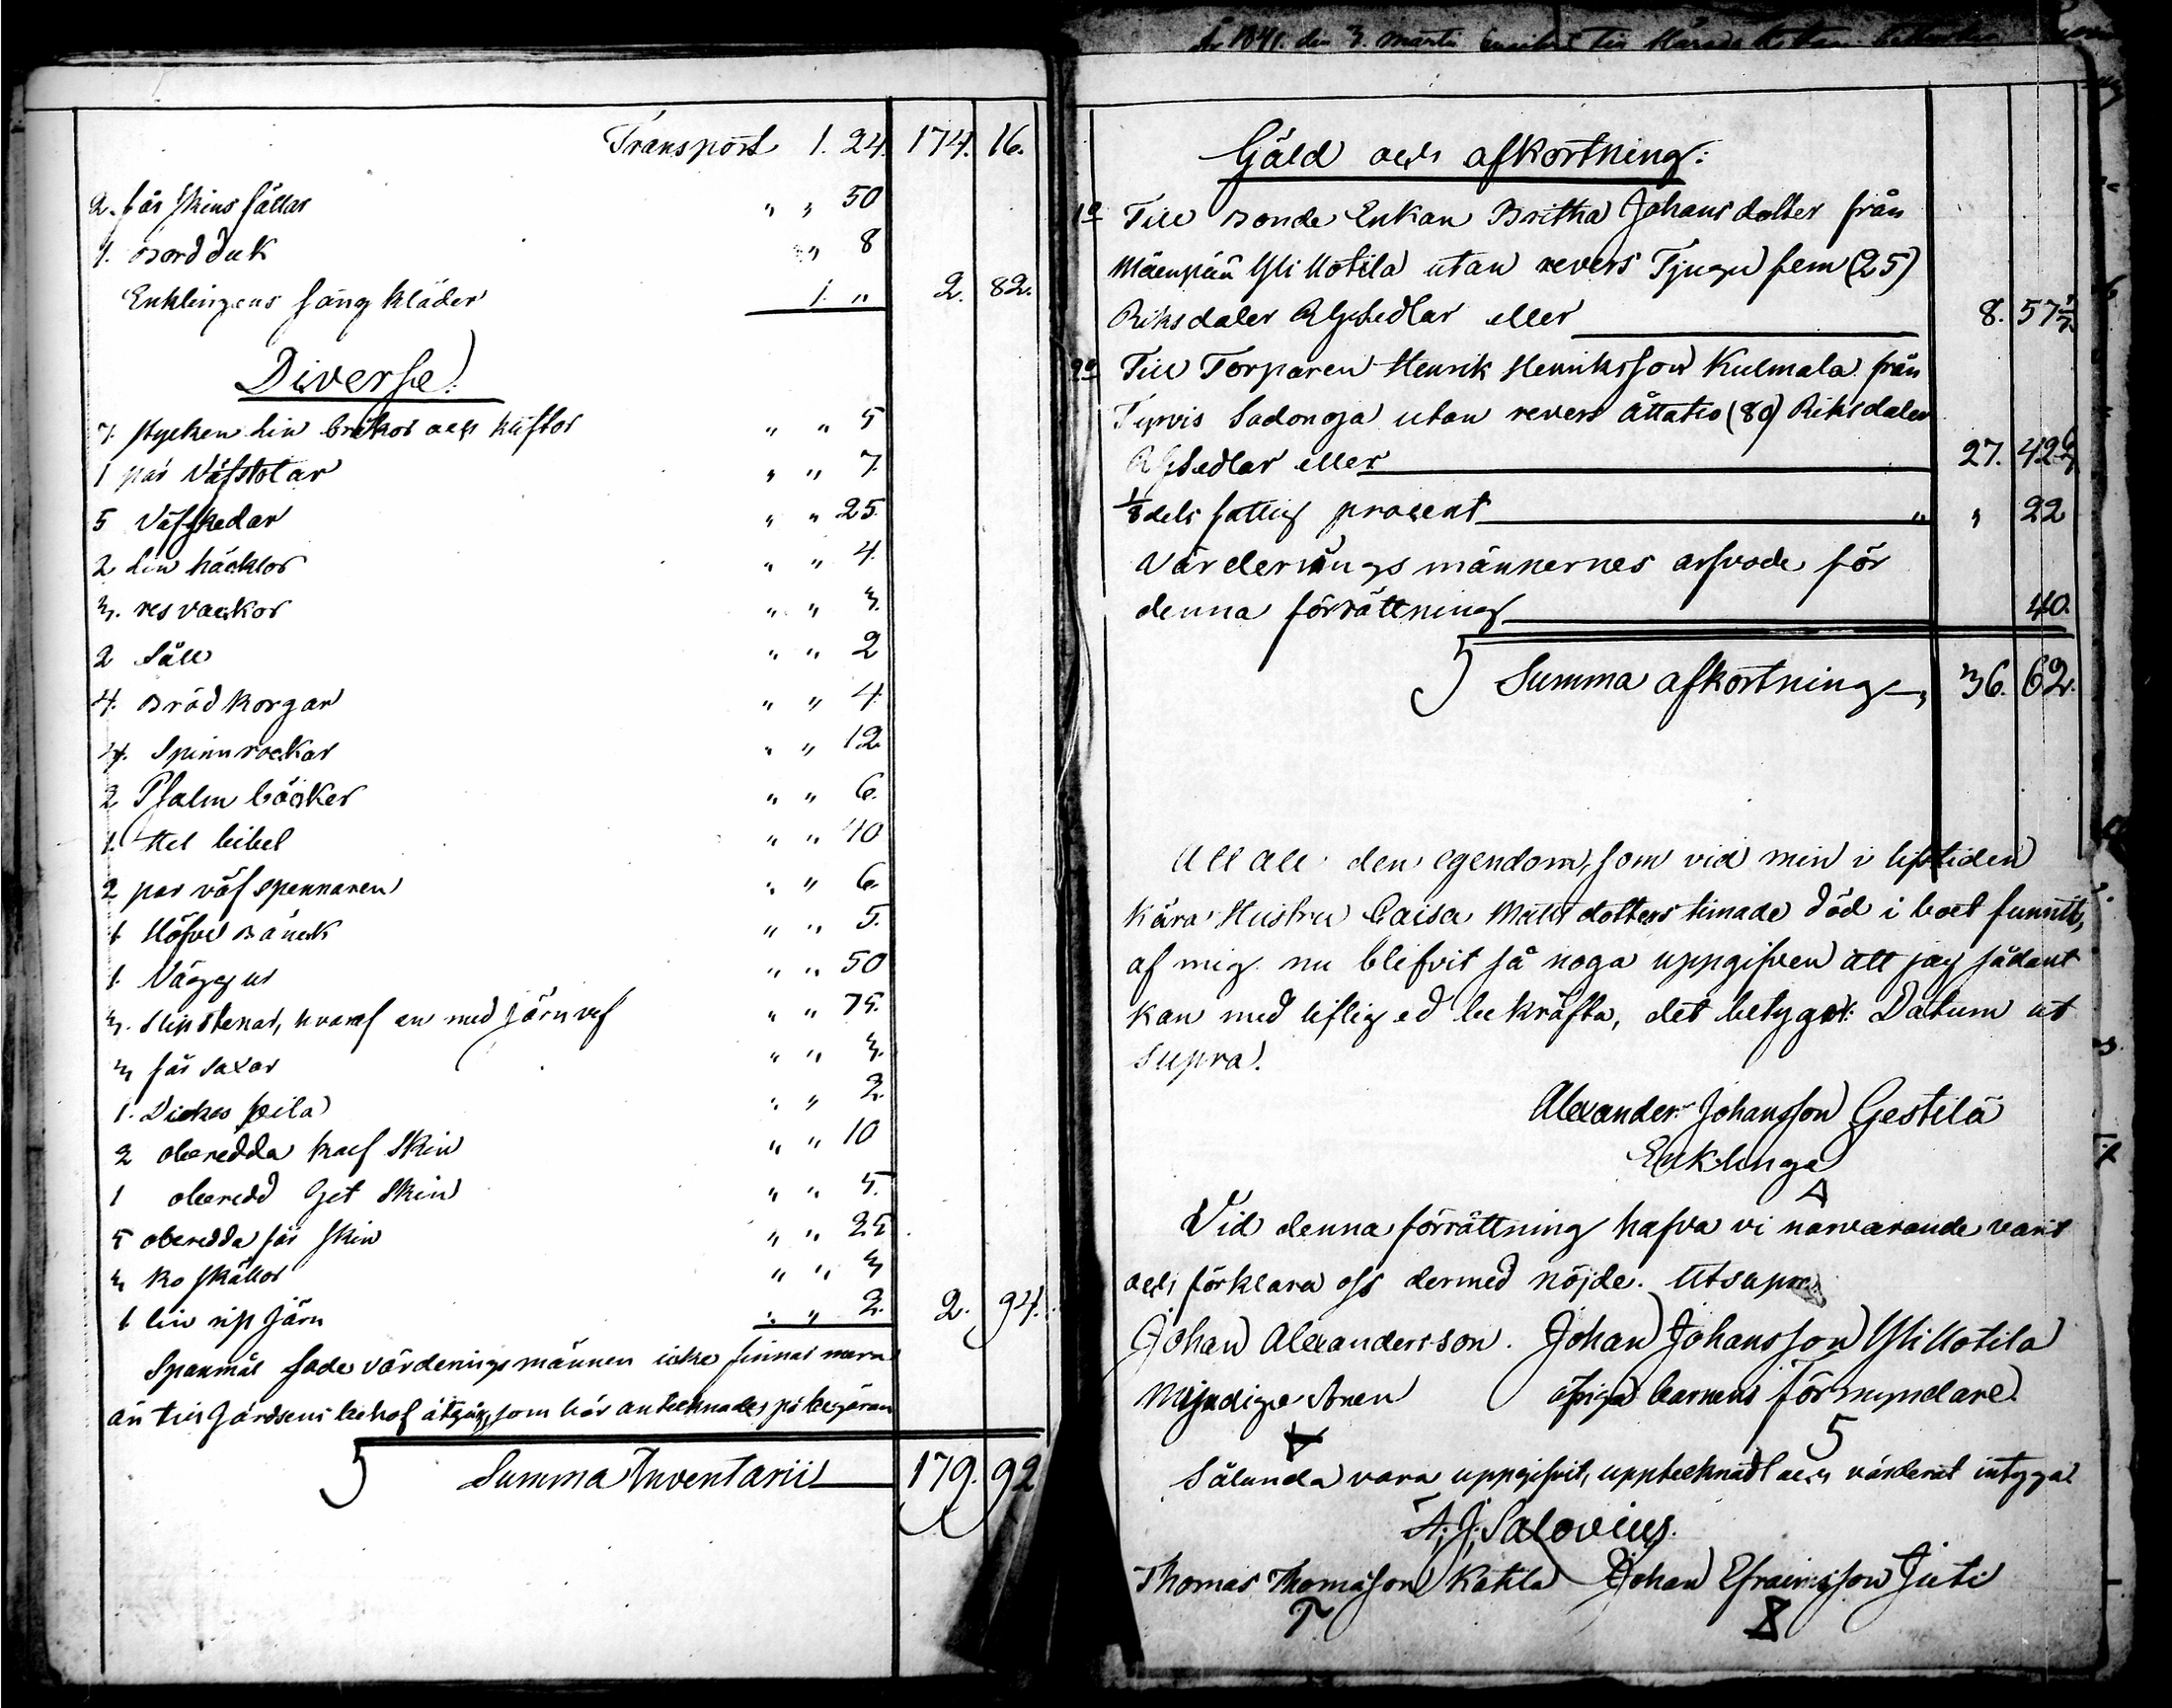 Transport 1. 24. 174. 16.
2. får skins fällar " " 50
1. Bord duk " " 8
Enklingens säng kläder 1. " 2. 82.
Diverse:
7 stycken lin bråkor och klyftor " " 5
1 par Väfstolar " " 7
5 Väfskedar " " 25
2 Lin häcklor " " 4.
3. res vackor " " 3.
2 Såll " " 2
4. Bröd korgar " " 4
4. Spinnrockar " " 12
2 Psalm böcker " " 6.
1. Hel bibel " " 40
2 par väf spennaren " " 6
1 Höfvel Bänck " " 5.
1. Vägg ur " " 50
3. Slipstenar, hvaraf en med järn vef " " 75.
3 får saxar " " 3.
1. Dickes " " 2
2 oberedda kalf skin " " 10
1 oberedd Get skin " " 5.
5 oberedda får skin " " 25
3 ko skällor " " 3
1 lin rip järn " " 2 2. 94.
Spanmål sade värderings männen icke finnas mera
än till Gårdsens behof åtgår, som här antecknades på begäran
S Summa Inventarii 179. 92
År 1841. den 3. Martii till Härads Rätten
Gäld och afkortning:
1o Till Bonde Enkan Britha Johans dotter från
Mäenpää Yli Uotila utan revers Tjugu fem (25)
Riksdaler RGSedlar eller 8. 57 1/7
2o Till Torparen Henrik Henriksson Kulmala från
Tyrvis Sadonoja utan revers Åttatio (80) Riksdaler
RGSedlar eller 27. 42 6/7
1/8 dels fattig procent " " 22
Värderings männernes arfvode för
denna förrättning 40.
S Summa afkortning 36. 62.
All den egendom, som vid min i lifstiden
kära Hustru Caisa Matts dotters timade död i boet funnits,
af mig nu blifvit så noga uppgifven att jag sådant
kan med liflig ed bekräfta, det betygar: Datum ut
supra.
Alexander Johansson Gestilä
Enklinge
Vid denna förrättning hafva vi närvarande varit
och förklara oss dermed nöjde. Utsupra
Johan Alexandersson. Johan Johansson Yli Uotila
Myndige Sonen öfriga barnens Förmyndare.
Sålunda vara uppgifvit, upptecknadt och värderat intyga
A. J. Salovius.
Thomas Thomasson Katila Johan Efraimsson Juti
T